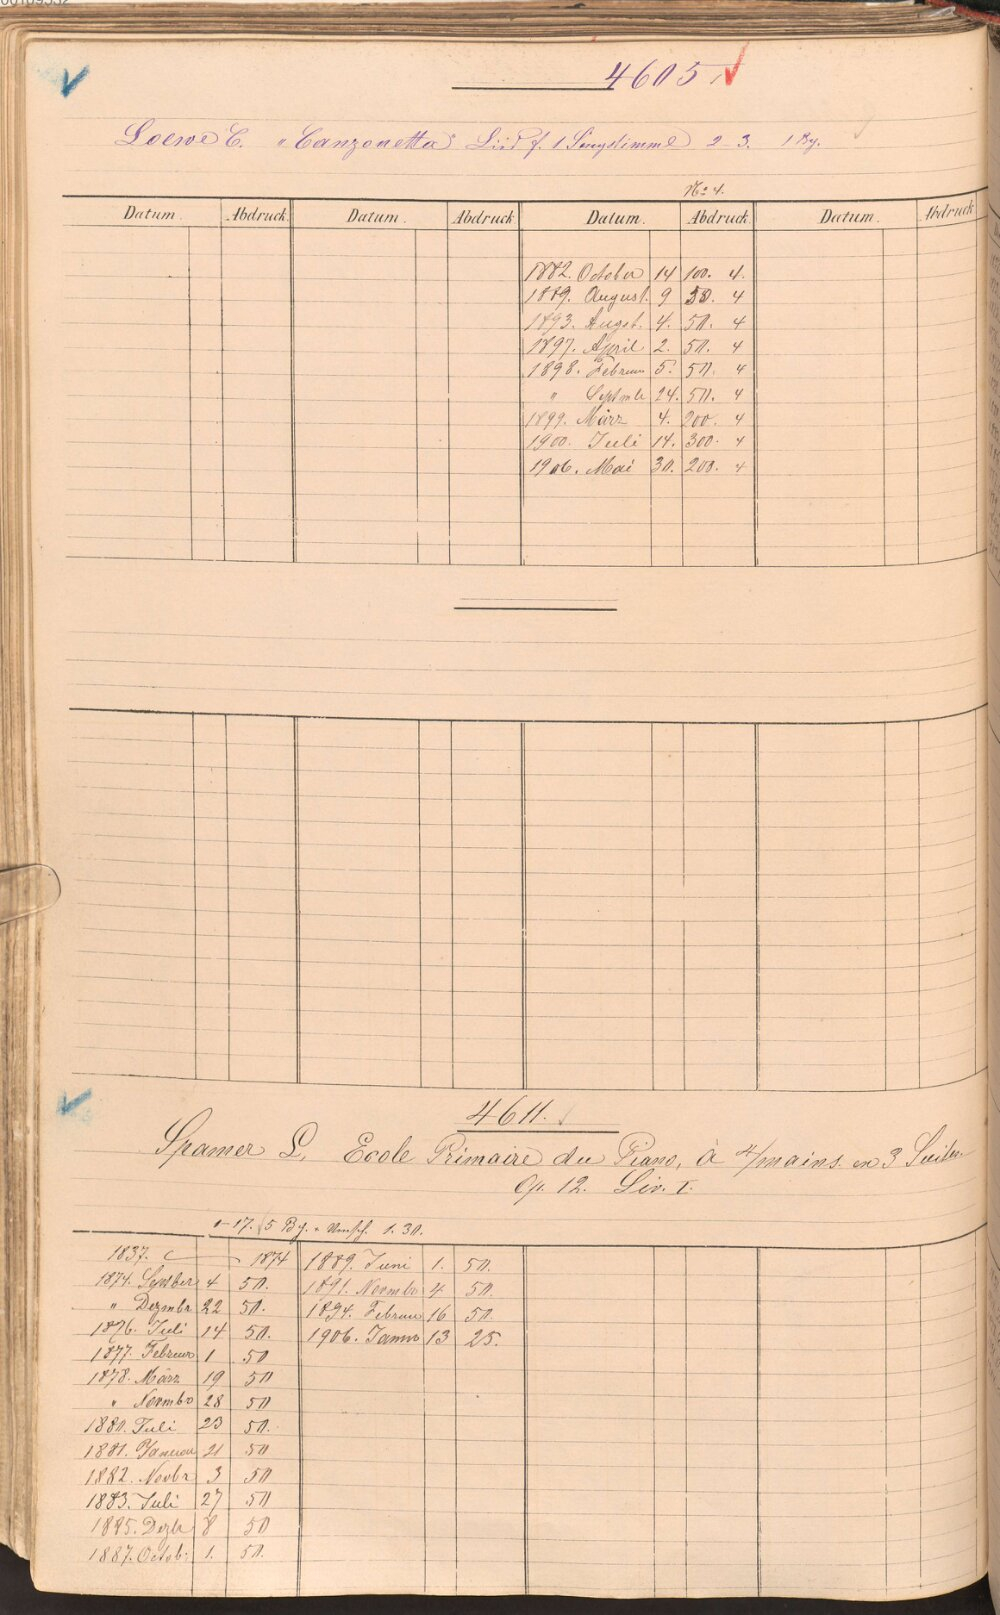 4605
Loewe C. „Canzonetta" Lied f. 1 Singstimme 2-3. 1 Bg.
No 4.
Datum. Abdruck Datum. Abdruck Datum. Abdruck Datum. Abdruck
1882. October 14 100. 4.
1889. August. 9 50. 4
1893. Augst. 4. 50. 4
1897. April 2. 50. 4
1898. Februar 5. 50. 4
" Septmb 24. 50. 4
1899. März 4. 200. 4
1900. Juli 14. 300. 4
1906. Mai 30. 200. 4
4611.
Spamer L. Ecole Primaire du Piano, à 4/mains. en 3 Suites.
Op. 12. Liv. I.
1-17. 5 Bg. + Umsch. 1.30.
1837. 1874
1874. Septber 4 50.
" Dezmbr 22 50.
1876. Juli 14 50.
1877. Februar 1 50
1878. März 19 50
" Novmbr 28 50
1880. Juli 23 50.
1881. Januar 21 50
1882. Novbr 3 50
1883. Juli 27 50
1885. Dezbr 8 50
1887. Octob. 1. 50.
1889. Juni 1. 50.
1891. Novmbr 4 50.
1894. Februar 16 50.
1906. Januar 13 25.